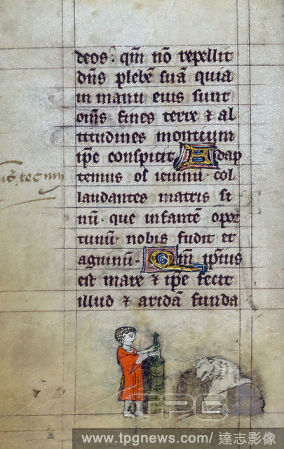 deos: qm̄ nō repellit
dn̄s plebē suā quia
in manu eius sunt
om̄s fines terre & al
titudines montium
ip̄e conspicit Adap
temus
laudantes matris si
nū· que infantē opor
tunū· nobis fudit et
agninū· Qm̄ ip̄ius
est mare & ip̄e fecit
illud & aridā funda
TPG
www.tpgnews.com/ 達志影像